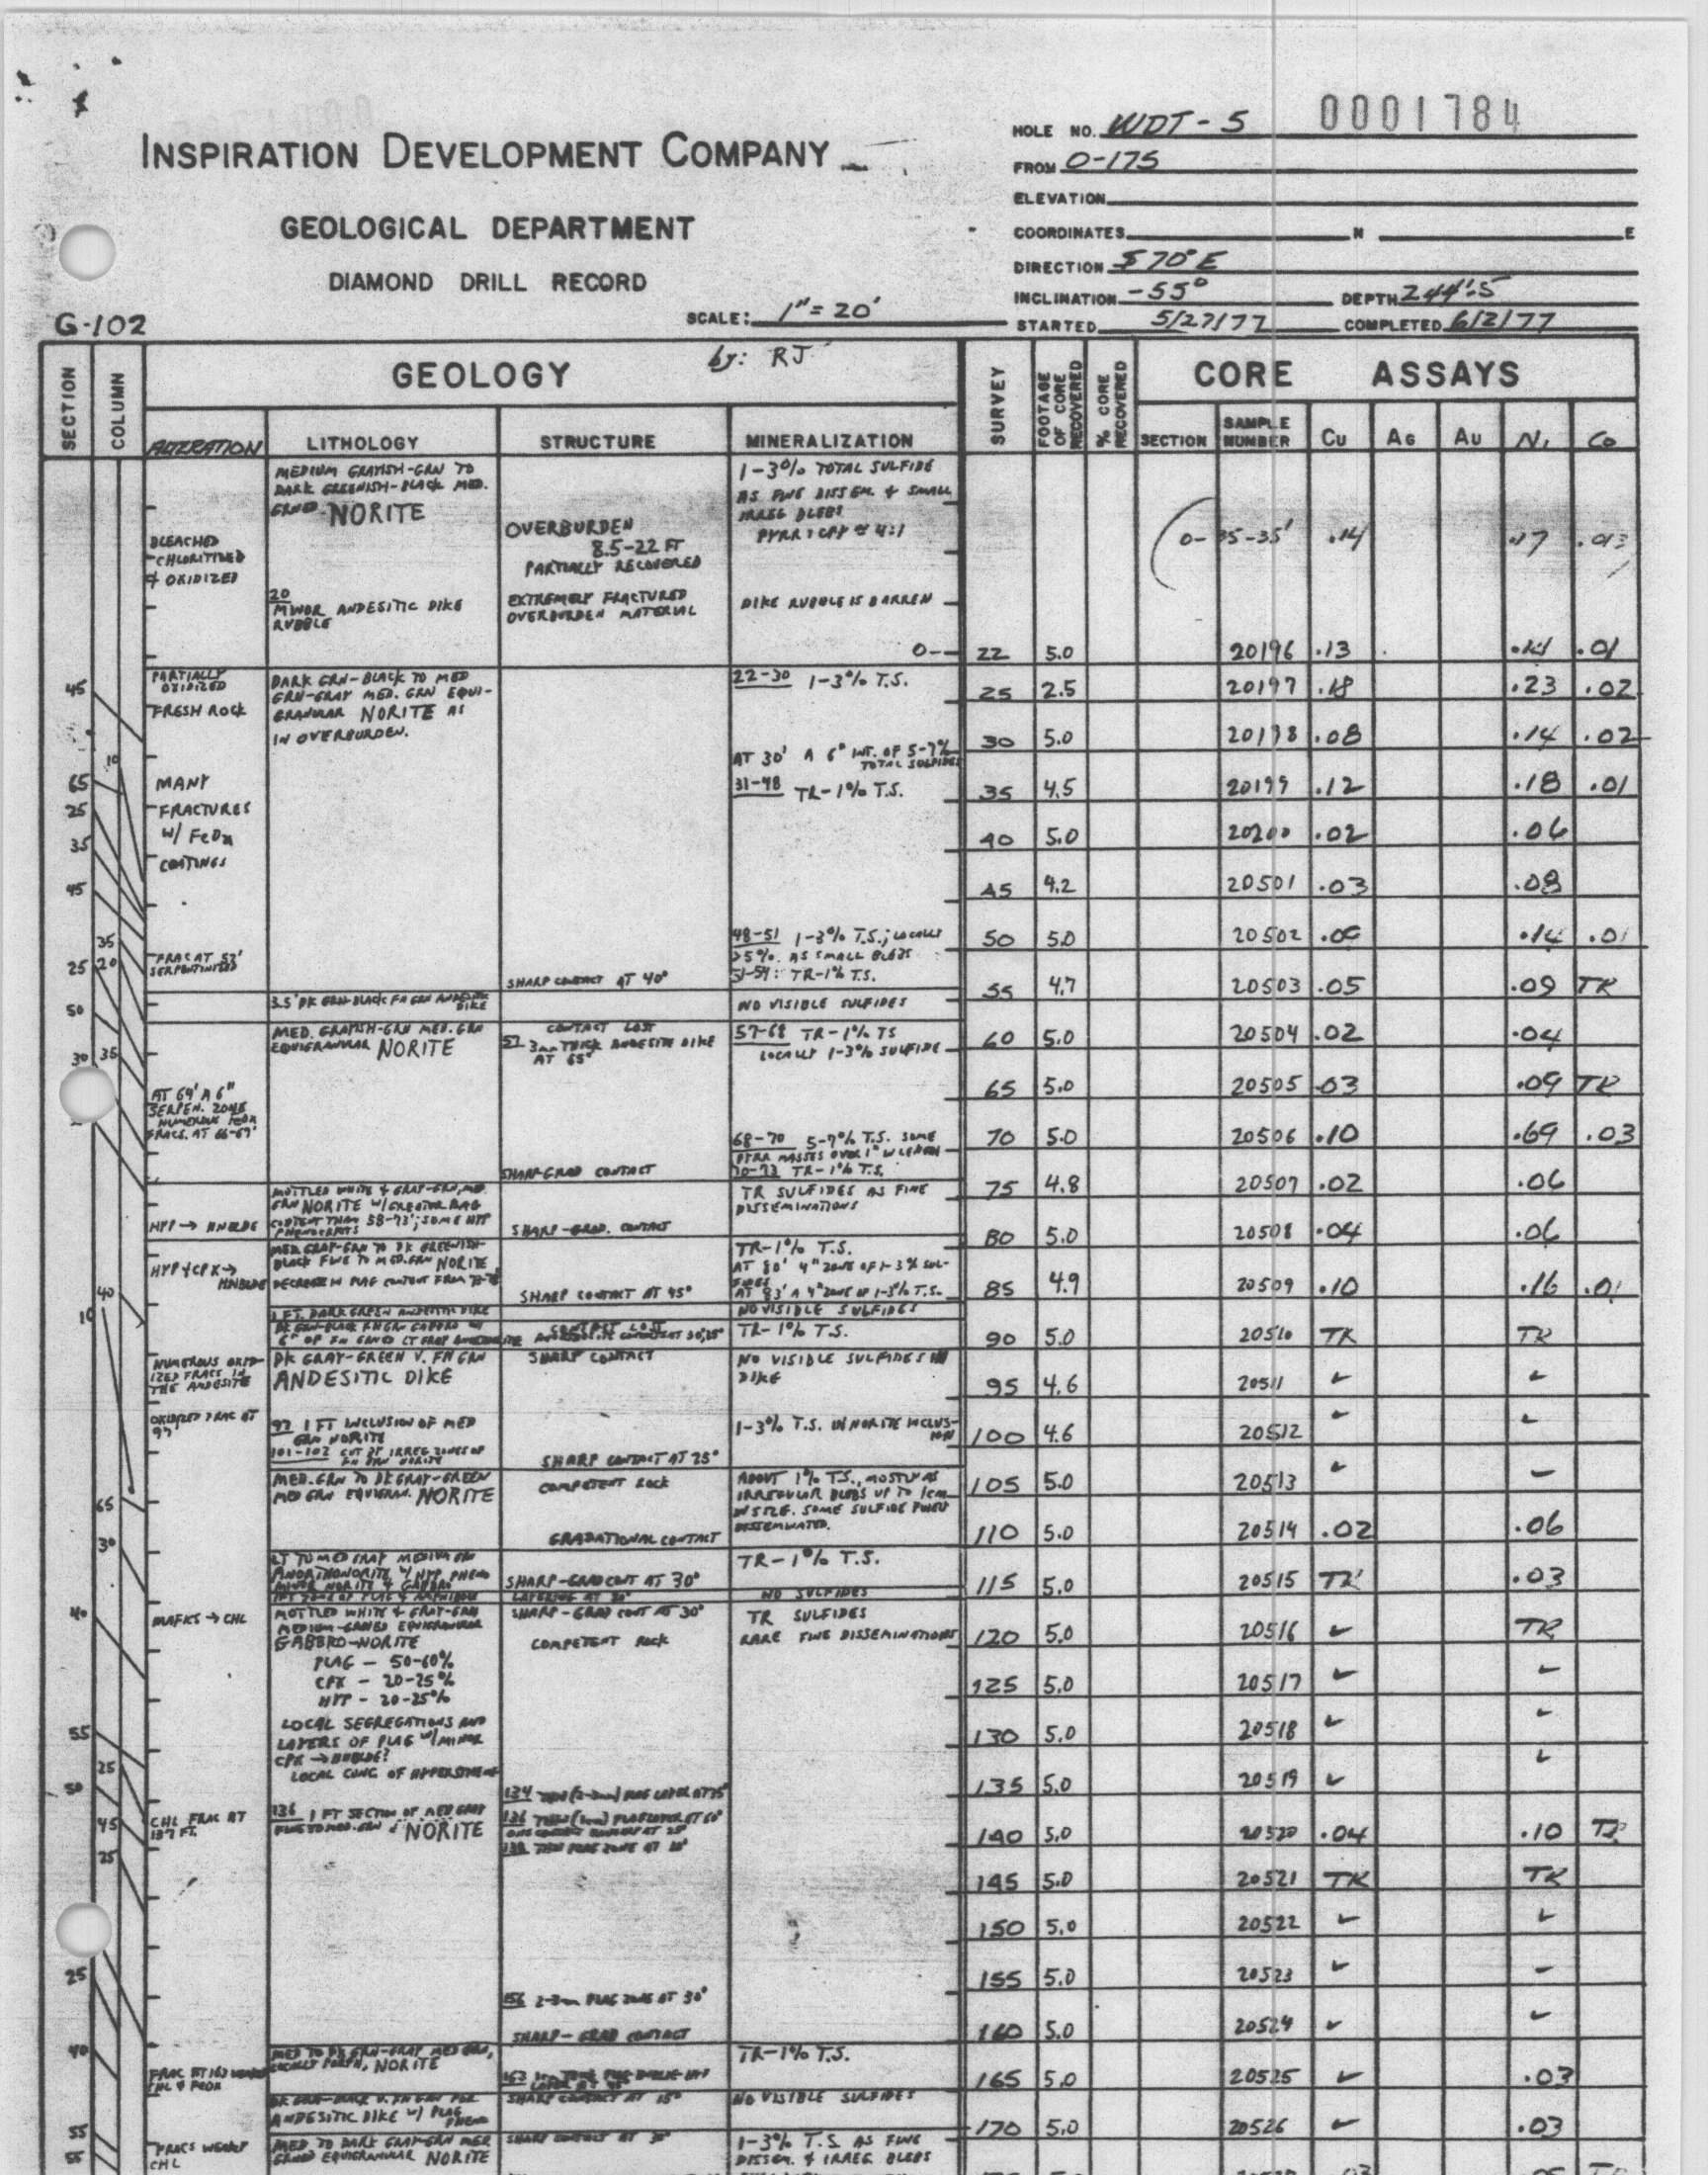 0001784
HOLE NO. WDT-5
INSPIRATION DEVELOPMENT COMPANY
FROM 0-175
ELEVATION
GEOLOGICAL DEPARTMENT
COORDINATES N E
DIRECTION S70°E
DIAMOND DRILL RECORD
INCLINATION -55° DEPTH 244'.5
G-102
SCALE: 1"=20'
STARTED 5/27/77 COMPLETED 6/2/77
SECTION COLUMN GEOLOGY by: RJ SURVEY FOOTAGE OF CORE RECOVERED % CORE RECOVERED CORE ASSAYS
ALTERATION LITHOLOGY STRUCTURE MINERALIZATION SECTION SAMPLE NUMBER Cu Ag Au Ni Co
MEDIUM GRAYISH-GRN TO
DARK GREENISH-BLACK MED.
GRNED NORITE
1-3% TOTAL SULFIDE
AS FINE DISSEM. & SMALL
IRREG BLEBS
PYRR : CPY ≈ 4:1
BLEACHED
CHLORITIZED
& OXIDIZED
OVERBURDEN
8.5-22 FT
PARTIALLY RECOVERED
0- 35-35' .14 .17 .013
20
MINOR ANDESITIC DIKE
RUBBLE
EXTREMELY FRACTURED
OVERBURDEN MATERIAL
DIKE RUBBLE IS BARREN
0— 22 5.0 20196 .13 .14 .01
PARTIALLY
OXIDIZED
FRESH ROCK
DARK GRN-BLACK TO MED
GRN-GRAY MED. GRN EQUI-
GRANULAR NORITE AS
IN OVERBURDEN.
22-30 1-3% T.S.
25 2.5 20197 .18 .23 .02
30 5.0 20198 .08 .14 .02
AT 30' A 6" INT. OF 5-7%
TOTAL SULFIDES
31-48 TR-1% T.S.
35 4.5 20199 .12 .18 .01
MANY
FRACTURES
W/ FeOx
COATINGS
40 5.0 20200 .02 .06
45 4.2 20501 .03 .08
48-51 1-3% T.S.; LOCALLY
>5% AS SMALL BLEBS
51-54: TR-1% T.S.
50 5.0 20502 .09 .14 .01
FRAC AT 52'
SERPENTINIZED
SHARP CONTACT AT 40°
55 4.7 20503 .05 .09 TR
3.5' DK GRN-BLACK FN GRN ANDESITE
DIKE
NO VISIBLE SULFIDES
MED. GRAYISH-GRN MED. GRN
EQUIGRANULAR NORITE
CONTACT LOST
57 3mm THICK ANDESITE DIKE
AT 65°
57-68 TR-1% TS
LOCALLY 1-3% SULFIDE
60 5.0 20504 .02 .04
65 5.0 20505 .03 .09 TR
AT 69' A 6"
SERPEN. ZONE
NUMEROUS FeOx
FRACS. AT 66-67'
68-70 5-7% T.S. SOME
PYRR MASSES OVER 1" IN LENGTH
70-73 TR-1% T.S.
70 5.0 20506 .10 .69 .03
SHARP-GRAD CONTACT
75 4.8 20507 .02 .06
MOTTLED WHITE & GRAY-GRN, MED.
GRN NORITE W/ GREATER PLAG
CONTENT THAN 58-73'; SOME HYP
PHENOCRYSTS
TR SULFIDES AS FINE
DISSEMINATIONS
HYP → HNBLDE
SHARP-GRAD. CONTACT
80 5.0 20508 .04 .06
MED GRAY-GRN TO DK GREENISH-
BLACK FINE TO MED. GRN NORITE
HYP & CPX →
HNBLDE
TR-1% T.S.
AT 80' 4" ZONE OF 1-3% SUL-
FIDES
AT 83' A 4" ZONE OF 1-3% T.S.
SHARP CONTACT AT 45°
85 4.9 20509 .10 .16 .01
1 FT. DARK GREEN ANDESITIC DIKE
NO VISIBLE SULFIDES
CONTACT LOST
TR-1% T.S.
90 5.0 20510 TR TR
NUMEROUS OXID-
IZED FRACS IN
THE ANDESITE
DK GRAY-GREEN V. FN GRN
ANDESITIC DIKE
SHARP CONTACT
NO VISIBLE SULFIDES IN
DIKE
95 4.6 20511 ✓ ✓
OXIDIZED FRAC AT
97'
97 1 FT INCLUSION OF MED
GRN NORITE
101-102 CUT BY IRREG ZONES OF
FN GRN NORITE
SHARP CONTACT AT 25°
1-3% T.S. IN NORITE INCLUS-
ION
100 4.6 20512 ✓ ✓
MED. GRN TO DK GRAY-GREEN
MED GRN EQUIGRAN. NORITE
COMPETENT ROCK
ABOUT 1% T.S., MOSTLY AS
IRREGULAR BLEBS UP TO 1cm
IN SIZE. SOME SULFIDE FINELY
DISSEMINATED.
105 5.0 20513 ✓ —
GRADATIONAL CONTACT
110 5.0 20514 .02 .06
LT TO MED GRAY MEDIUM GRN
ANORTHONORITE W/ HYP PHENO
MINOR NORITE & GABBRO
SHARP-GRAD CONT AT 30°
TR-1% T.S.
115 5.0 20515 TR .03
NO SULFIDES
MAFICS → CHL
MOTTLED WHITE & GRAY-GRN
MEDIUM-GRNED EQUIGRANULAR
GABBRO-NORITE
PLAG — 50-60%
CPX — 20-25%
HYP - 20-25%
SHARP-GRAD CONT AT 30°
COMPETENT ROCK
TR SULFIDES
RARE FINE DISSEMINATIONS
120 5.0 20516 ✓ TR
125 5.0 20517 ✓ ✓
LOCAL SEGREGATIONS AND
LAYERS OF PLAG W/ MINOR
CPX → HNBLDE?
LOCAL CONC OF HYPERSTHENE
130 5.0 20518 ✓ ✓
135 5.0 20519 ✓ ✓
134 THIN (2-3mm) PLAG LAYER AT 75°
CHL FRAC AT
137 FT.
136 1 FT SECTION OF MED GRAY
FINE TO MED. GRN NORITE
140 5.0 20520 .04 .10 TR
145 5.0 20521 TR TR
150 5.0 20522 ✓ ✓
155 5.0 20523 ✓ —
156 2-3mm PLAG ZONE AT 30°
SHARP-GRAD CONTACT
160 5.0 20524 ✓ ✓
MED TO DK GRN-GRAY MED GRN,
LOCALLY PORPH, NORITE
TR-1% T.S.
165 5.0 20525 ✓ .03
ANDESITIC DIKE W/ PLAG
PHENO
SHARP CONTACT AT 15°
NO VISIBLE SULFIDES
170 5.0 20526 ✓ .03
FRACS WEAKLY
CHL
MED TO DARK GRAY-GRN MED
GRNED EQUIGRANULAR NORITE
1-3% T.S. AS FINE
DISSEM. & IRREG BLEBS